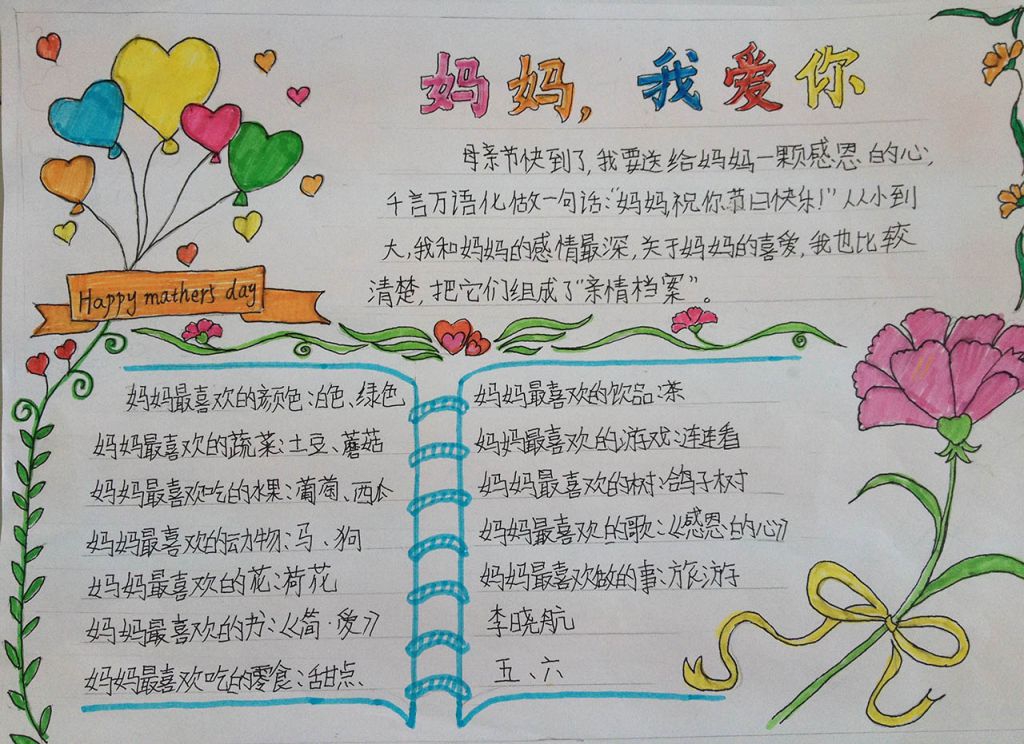 妈妈,我爱你
母亲节快到了,我要送给妈妈一颗感恩的心,
千言万语化做一句话:"妈妈,祝你节日快乐!"从小到
大,我和妈妈的感情最深,关于妈妈的喜爱,我也比较
清楚,把它们组成了"亲情档案"。
Happy mathers day
妈妈最喜欢的颜色:白色、绿色
妈妈最喜欢的蔬菜:土豆、蘑菇
妈妈最喜欢吃的水果:葡萄、西瓜
妈妈最喜欢的动物:马、狗
妈妈最喜欢的花:荷花
妈妈最喜欢的书:《简·爱》
妈妈最喜欢吃的零食:甜点、
妈妈最喜欢的饮品:茶
妈妈最喜欢的游戏:连连看
妈妈最喜欢的树:鸽子树
妈妈最喜欢的歌:《感恩的心》
妈妈最喜欢做的事:旅游
李晓航
五、六